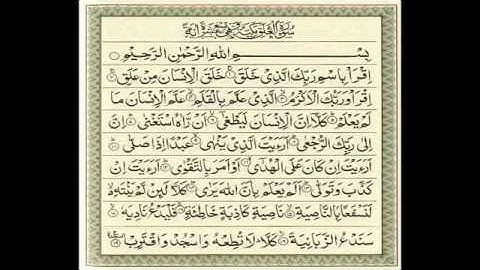 سورة العلق مكية وهي تسع عشرة آية
بِسْمِ اللهِ الرَّحْمٰنِ الرَّحِيْمِ
اِقْرَأْ بِاسْمِ رَبِّكَ الَّذِيْ خَلَقَ خَلَقَ الْاِنْسَانَ مِنْ عَلَقٍ
اِقْرَأْ وَرَبُّكَ الْاَكْرَمُ الَّذِيْ عَلَّمَ بِالْقَلَمِ عَلَّمَ الْاِنْسَانَ مَا
لَمْ يَعْلَمْ كَلَّا اِنَّ الْاِنْسَانَ لَيَطْغٰى اَنْ رَّاٰهُ اسْتَغْنٰى اِنَّ
اِلٰى رَبِّكَ الرُّجْعٰى اَرَءَيْتَ الَّذِيْ يَنْهٰى عَبْدًا اِذَا صَلّٰى
اَرَءَيْتَ اِنْ كَانَ عَلَى الْهُدٰى اَوْ اَمَرَ بِالتَّقْوٰى اَرَءَيْتَ اِنْ
كَذَّبَ وَتَوَلّٰى اَلَمْ يَعْلَمْ بِاَنَّ اللهَ يَرٰى كَلَّا لَئِنْ لَّمْ يَنْتَهِ
لَنَسْفَعًا بِالنَّاصِيَةِ نَاصِيَةٍ كَاذِبَةٍ خَاطِئَةٍ فَلْيَدْعُ نَادِيَهٗ
سَنَدْعُ الزَّبَانِيَةَ كَلَّا لَا تُطِعْهُ وَاسْجُدْ وَاقْتَرِبْ